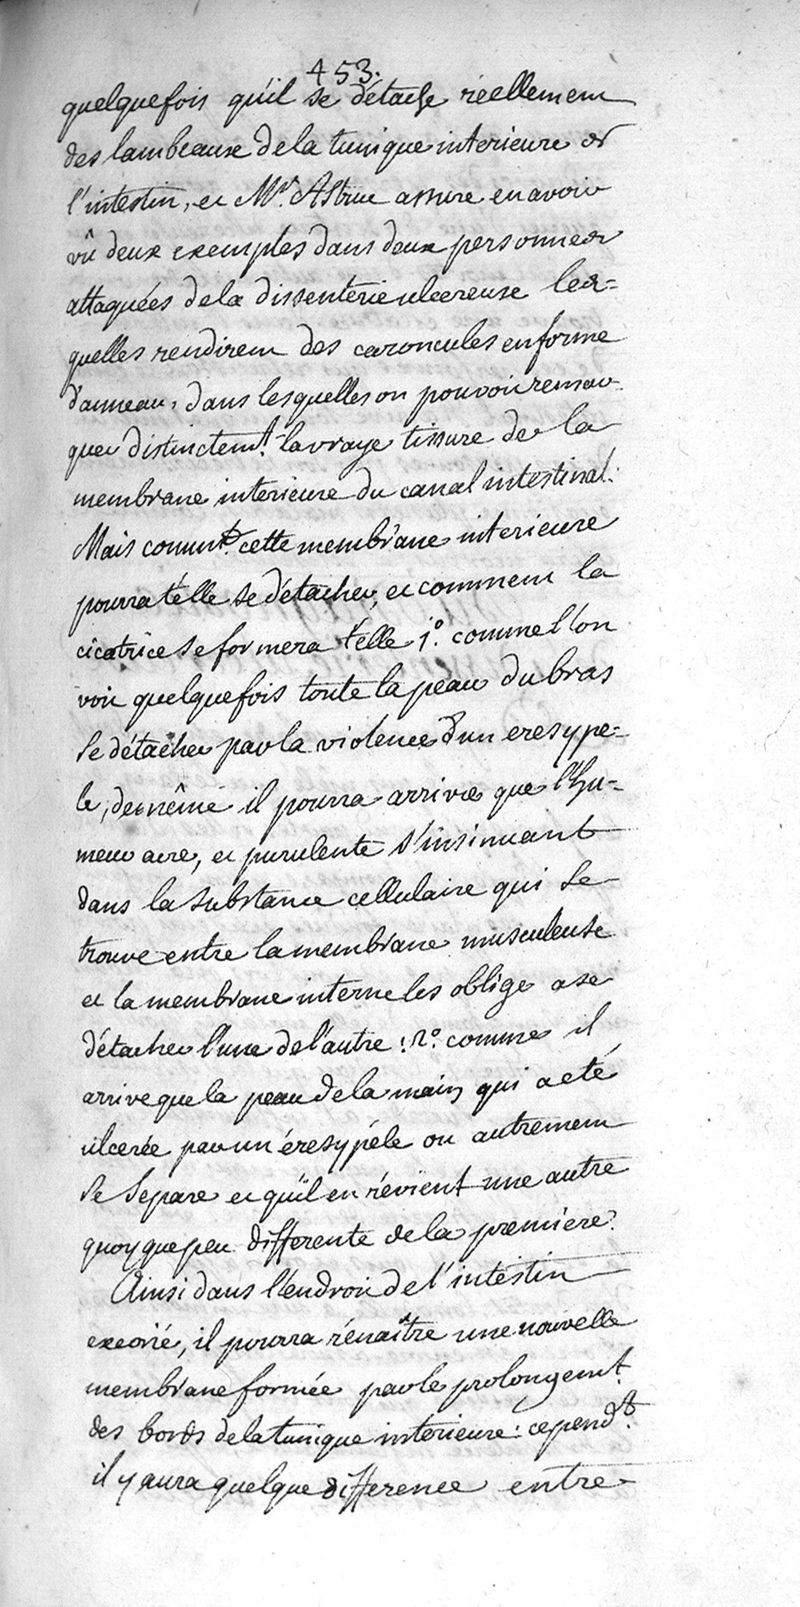 453.
quelquefois qu'il se détache réellement
des lambeaux de la tunique interieure de
l'intestin, et Mr. Astruc assure en avoir
vû deux exemples dans deux personnes
attaquées de la dissenterie ulcereuse les=
quelles rendirent des caroncules en forme
d'anneau, dans lesquelles on pouvoit remar
quer distinctemt. la vraye tissure de la
membrane interieure du canal intestinal.
Mais commt. cette membrane interieure
pourra t'elle se détacher, et comment la
cicatrice se formera t'elle 1o. comme l'on
voit quelquefois toute la peau du bras
se détacher par la violence d'un eresype=
le, de même il pourra arriver que l'hu=
meur acre, et purulente s'insinuant
dans la substance cellulaire qui se
trouve entre la membrane musculeuse
et la membrane interne les oblige a se
détacher l'une de l'autre: 2o. comme il
arrive que la peau de la main qui a eté
ulcerée par un éresypéle ou autrement
se separe et qu'il en révient une autre
quoyque peu differente de la premiere.
Ainsi dans l'endroit de l'intestin
excorié, il pourra rénaître une nouvelle
membrane formée par le prolongemt.
des bords de la tunique interieure: cependt.
il y aura quelque difference entre